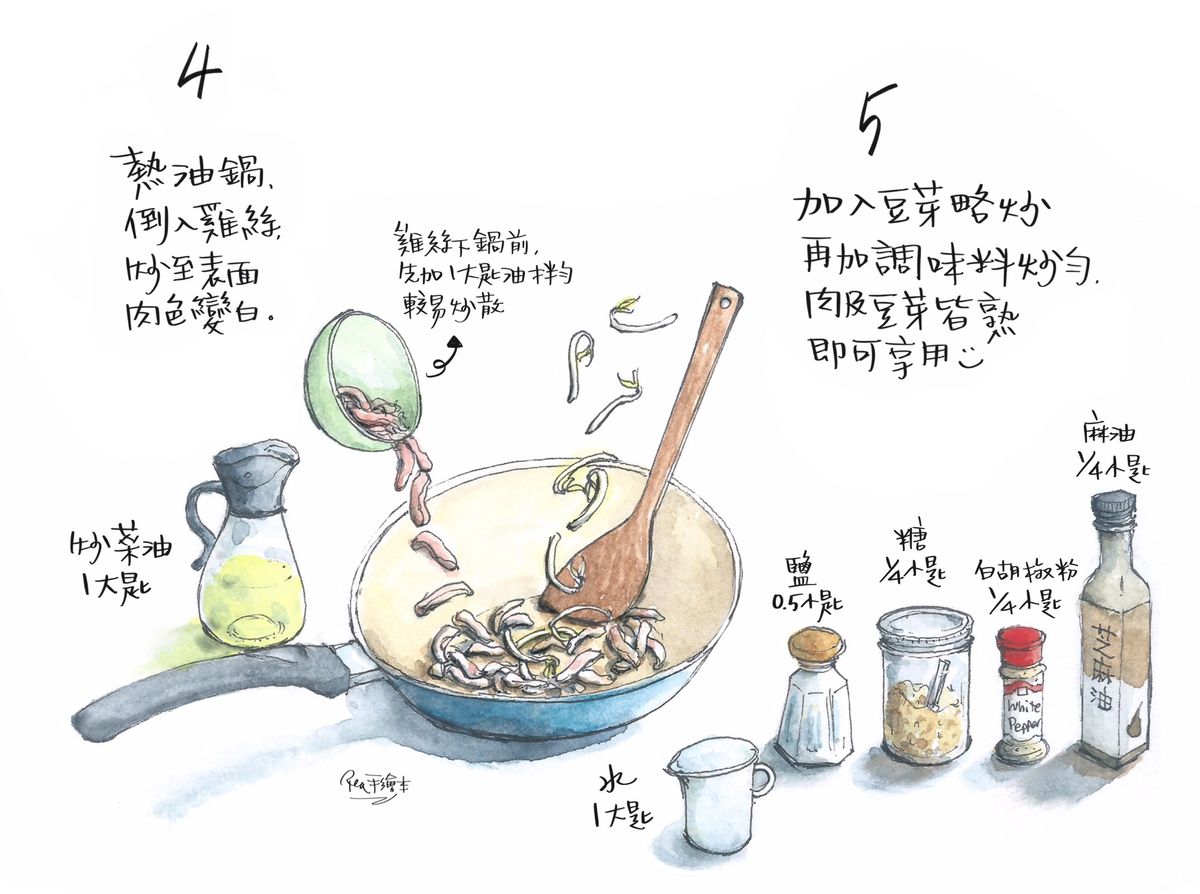 4
熱油鍋、
倒入雞絲、
炒至表面
肉色變白。
雞絲下鍋前,
先加1大匙油拌勻
較易炒散
炒菜油
1大匙
5
加入豆芽略炒
再加調味料炒勻,
肉及豆芽皆熟
即可享用
水
1大匙
鹽
0.5小匙
糖
1/4小匙
白胡椒粉
1/4小匙
White
Pepper
麻油
1/4小匙
芝麻油
Rea手繪本